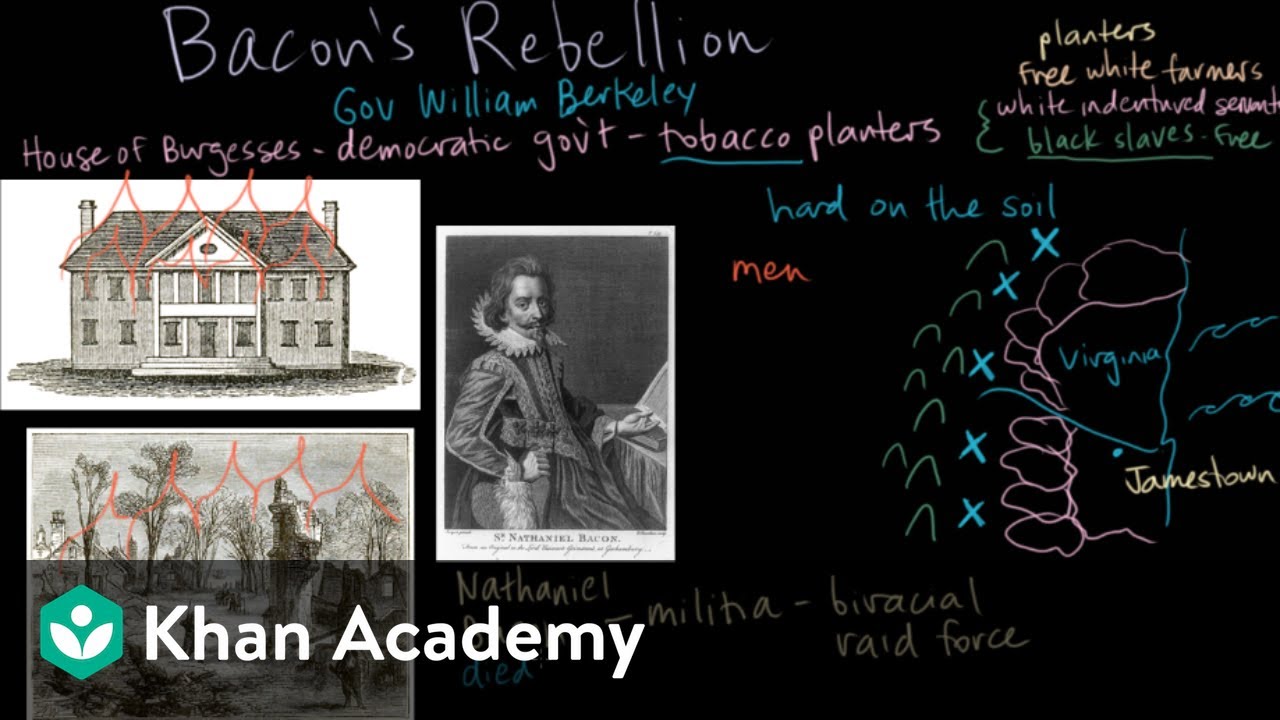 Bacon's Rebellion
Gov William Berkeley
House of Burgesses - democratic gov't - tobacco planters
planters
Free white farmers
white indentured servants
black slaves - Free
hard on the soil
men
Virginia
Jamestown
Sr. NATHANIEL BACON.
Nathaniel
- militia - biracial
raid force
died
Khan Academy